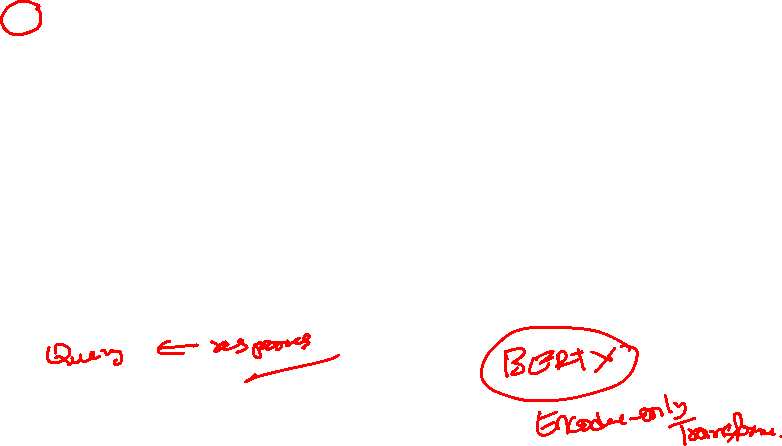 Query ← respones
BERT
Encoder-only
Transformer.